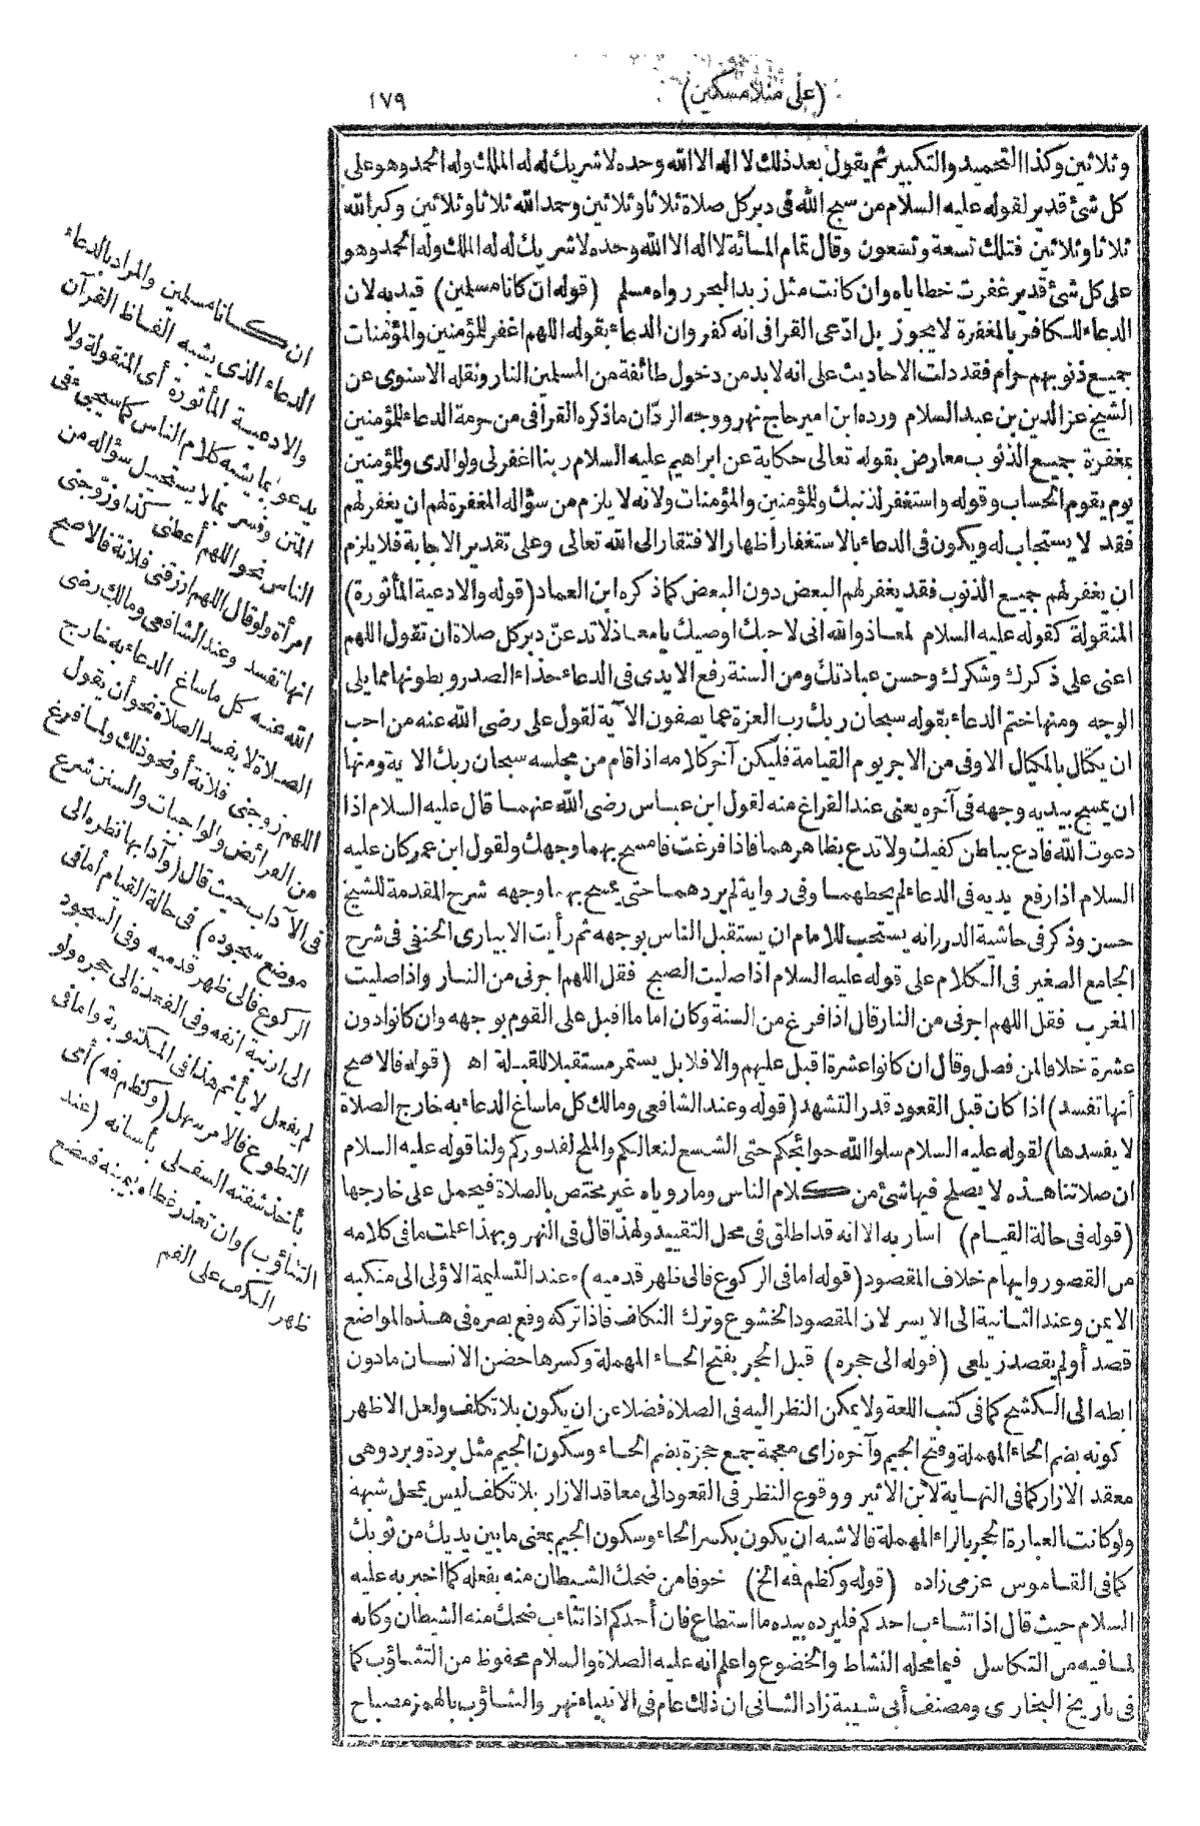 (على منلا مسكين)
١٧٩
وثلاثين وكذا التحميد والتكبير ثم يقول بعد ذلك لا اله الا الله وحده لا شريك له له الملك وله الحمد وهو على
كل شئ قدير لقوله عليه السلام من سبح الله فى دبر كل صلاة ثلاثا وثلاثين وحمد الله ثلاثا وثلاثين وكبر الله
ثلاثا وثلاثين فتلك تسعة وتسعون وقال تمام المائة لا اله الا الله وحده لا شريك له له الملك وله الحمد وهو
على كل شئ قدير غفرت خطاياه وان كانت مثل زبد البحر رواه مسلم (قوله ان كانا مسلمين) قيد به لان
الدعاء للكافر بالمغفرة لا يجوز بل ادّعى القرافى انه كفر وان الدعاء بقوله اللهم اغفر للمؤمنين والمؤمنات
جميع ذنوبهم حرام فقد دلت الاحاديث على انه لا بد من دخول طائفة من المسلمين النار ونقله الاسنوى عن
الشيخ عز الدين بن عبد السلام ورده ابن امير حاج نهر ووجه الرد ان ما ذكره القرافى من حرمة الدعاء للمؤمنين
بمغفرة جميع الذنوب معارض بقوله تعالى حكاية عن ابراهيم عليه السلام ربنا اغفر لى ولوالدى وللمؤمنين
يوم يقوم الحساب وقوله واستغفر لذنبك وللمؤمنين والمؤمنات ولانه لا يلزم من سؤاله المغفرة لهم ان يغفر لهم
فقد لا يستجاب له ويكون فى الدعاء بالاستغفار اظهار الافتقار الى الله تعالى وعلى تقدير الاجابة فلا يلزم
ان يغفر لهم جميع الذنوب فقد يغفر لهم البعض دون البعض كما ذكره ابن العماد (قوله والادعية المأثورة)
المنقولة كقوله عليه السلام لمعاذ والله انى لاحبك اوصيك يا معاذ لا تدعنّ دبر كل صلاة ان تقول اللهم
اعنى على ذكرك وشكرك وحسن عبادتك ومن السنة رفع الايدى فى الدعاء حذاء الصدر وبطونها مما يلى
الوجه ومنها ختم الدعاء بقوله سبحان ربك رب العزة عما يصفون الآية لقول على رضى الله عنه من احب
ان يكتال بالمكيال الاوفى من الاجر يوم القيامة فليكن آخر كلامه اذا قام من مجلسه سبحان ربك الاية ومنها
ان يمسح بيديه وجهه فى آخره يعنى عند الفراغ منه لقول ابن عباس رضى الله عنهما قال عليه السلام اذا
دعوت الله فادع بباطن كفيك ولا تدع بظاهرهما فاذا فرغت فامسح بهما وجهك ولقول ابن عمر كان عليه
السلام اذا رفع يديه فى الدعاء لم يحطهما وفى رواية لم يردهما حتى يمسح بهما وجهه شرح المقدمة للشيخ
حسن وذكر فى حاشية الدرر انه يستحب للامام ان يستقبل الناس بوجهه ثم رأيت الابيارى الحنفى فى شرح
الجامع الصغير فى الكلام على قوله عليه السلام اذا صليت الصبح فقل اللهم اجرنى من النار واذا صليت
المغرب فقل اللهم اجرنى من النار قال اذا فرغ من السنة وكان اماما اقبل على القوم بوجهه وان كانوا دون
عشرة خلافا لمن فصل وقال ان كانوا عشرة اقبل عليهم والا فلا بل يستمر مستقبلا للقبلة اه (قوله فالاصح
أنها تفسد) اذا كان قبل القعود قدر التشهد (قوله وعند الشافعى ومالك كل ما ساغ الدعاء به خارج الصلاة
لا يفسدها) لقوله عليه السلام سلوا الله حوائجكم حتى الشسع لنعالكم والملح لقدوركم ولنا قوله عليه السلام
ان صلاتنا هذه لا يصلح فيها شئ من كلام الناس وما روياه غير مختص بالصلاة فيحمل على خارجها
(قوله فى حالة القيام) اسار به الا انه قد اطلق فى محل التقييد ولهذا قال فى النهر وبهذا علمت ما فى كلامه
من القصور وايهام خلاف المقصود (قوله اما فى الركوع فالى ظهر قدميه) وعند التسليمة الاولى الى منكبه
الايمن وعند الثانية الى الايسر لان المقصود الخشوع وترك التكاف فاذا تركه وقع بصره فى هذه المواضع
قصد أو لم يقصد زيلعى (قوله الى حجره) قبل الحجر بفتح الحاء المهملة وكسرها حضن الانسان ما دون
ابطه الى الكشح كما فى كتب اللعة ولا يمكن النظر اليه فى الصلاة فضلا عن ان يكون بلا تكلف ولعل الاظهر
كونه بضم الحاء المهملة وفتح الجيم وآخره زاى معجمة جمع حجزة بضم الحاء وسكون الجيم مثل بردة وبرد وهى
معقد الازار كما فى النهاية لابن الاثير ووقوع النظر فى القعود الى معاقد الازار بلا تكلف ليس بمحل شبهة
ولو كانت العبارة الحجر بالراء المهملة فالاشبه ان يكون بكسر الحاء وسكون الجيم بمعنى ما بين يديك من ثوبك
كما فى القاموس عزمى زاده (قوله وكظم فه الخ) خوفا من ضحك الشيطان منه بفعله كما اخبر به عليه
السلام حيث قال اذا تثاءب احدكم فليرده بيده ما استطاع فان أحدكم اذا تثاءب ضحك منه الشيطان وكانه
لما فيه من التكاسل فيما محله النشاط والخضوع واعلم انه عليه الصلاة والسلام محفوظ من التثاؤب كما
فى تاريخ البخارى ومصنف أبى شيبة زاد الثانى ان ذلك عام فى الانبياء نهر والتثاؤب بالهمز مصباح
ان كانا مسلمين والمراد بالدعاء
الدعاء الذى يشبه الفاظ القرآن
والادعية المأثورة أى المنقولة ولا
يدعو بما يشبه كلام الناس كما سيجئ فى
المتن وفسر بما لا يستحيل سؤاله من
الناس نحو اللهم أعطنى كذا وزوّجنى
امرأة ولو قال اللهم ارزقنى فلانة فالاصح
انها تفسد وعند الشافعى ومالك رضى
الله عنه كل ما ساغ الدعاء به خارج
الصلاة لا يفسد الصلاة نحو أن يقول
اللهم زوجنى فلانة أو نحو ذلك ولما فرغ
من الفرائض والواجبات والسنن شرع
فى الآداب حيث قال (وآدابها نظره الى
موضع سجوده) فى حالة القيام أما فى
الركوع فالى ظهر قدميه وفى السجود
الى ارنبة انفه وفى القعدة الى حجره ولو
لم يفعل لا يأثم هذا فى المكتوبة واما فى
التطوع فالامر سهل (وكظم فه) أى
يأخذ شفته السفلى بأسنانه (عند
التثاؤب) وان تعذر غطاه بيمينه فيضع
ظهر الكف على الفم